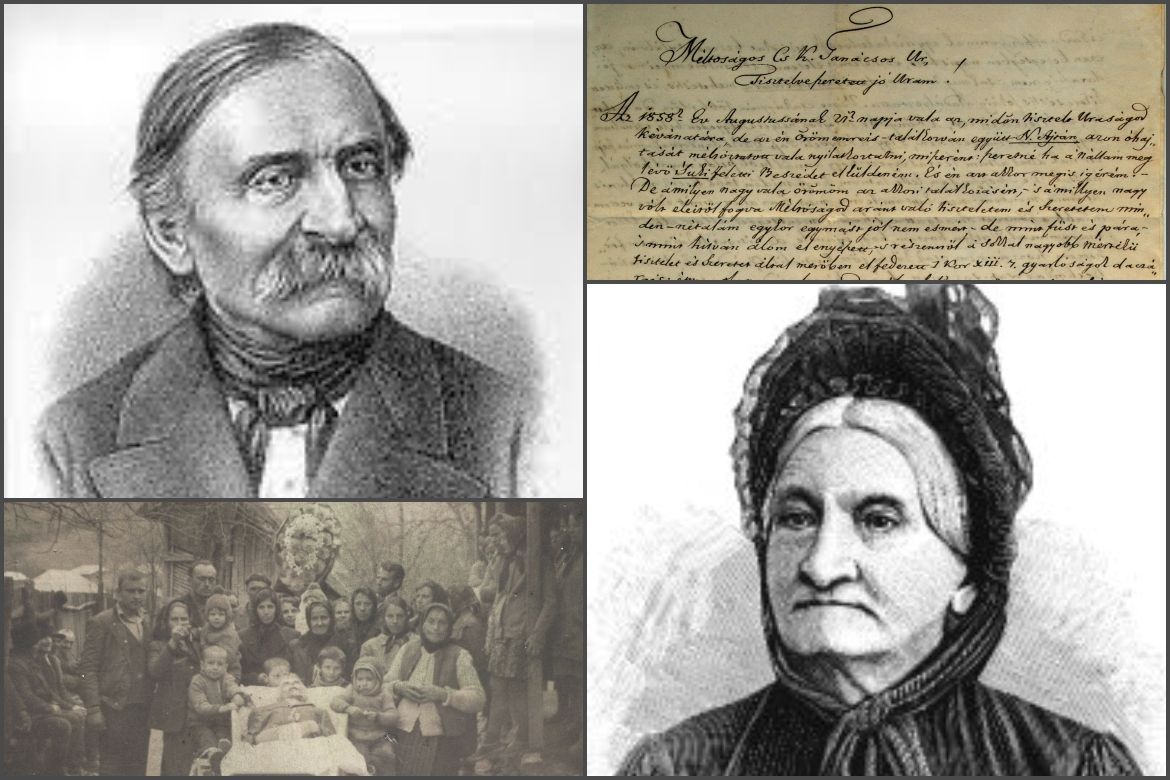 Méltoságos Cs K. Tanácsos Ur,
Tisztelve szeretett jó Uram.
Az 1858ik Év Augustussának 21ik napja vala az, midőn tisztelt Uraságod
kévánatára, de az én örömemre is találkozván együtt N. Ajtán, azon óhaj„
tását méltóztatott vala nyilatkoztatni, miszerént: szeretné ha a Nállam meg
lévő Juki feletti Beszédet elküldeném. És én azt akkor meg is igérém.-
De a milyen nagy vala örömöm az akkori találkozáson, - s a milyen nagy
vólt eleitől fogva Méltóságod aránt való tiszteletem és Szeretetem min„
den-nitalám egykor egymást jól nem esmért - de mint füst és pára,
s mint hitván álom elenyészett - s részemről a sokkal nagyobb mértékű
tisztelet és Szeretet által merőben elfedezett 1 Kor XIII. 7. gyarlóságok daczá„